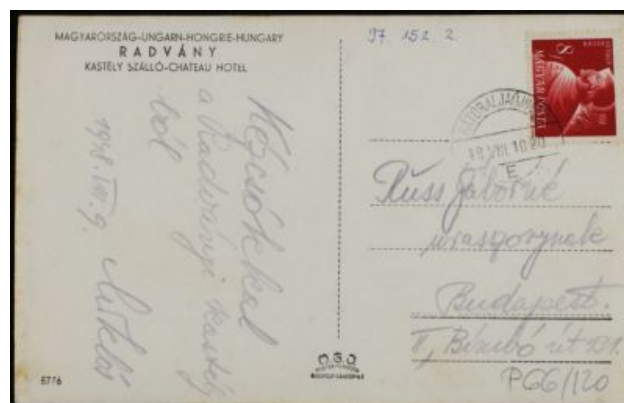 MAGYARORSZÁG-UNGARN-HONGRIE-HUNGARY
RADVÁNY
KASTÉLY SZÁLLÓ-CHATEAU HOTEL
97. 152. 2.
8
MAGYAR POSTA
VIII. 10
E
Kézcsókkal
a Radványi kastély
ból
1948. VIII. 9. Miklós
Russ Gáborné
uraszonynak
Budapest.
II, Bimbó út 101.
P66/120
5776